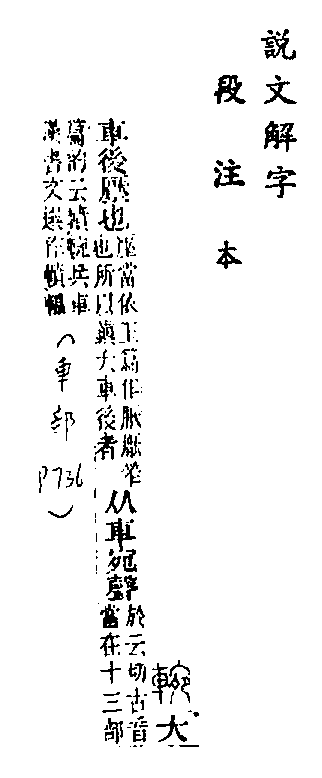 説文解字
段注本
䡝
大
車後壓也
壓當依玉篇作厭厭笮
也所以鎮大車後者
从車宛聲
於云切古音
當在十三部
云轒䡝兵車
漢書文選作轒轀
（車部
P736）